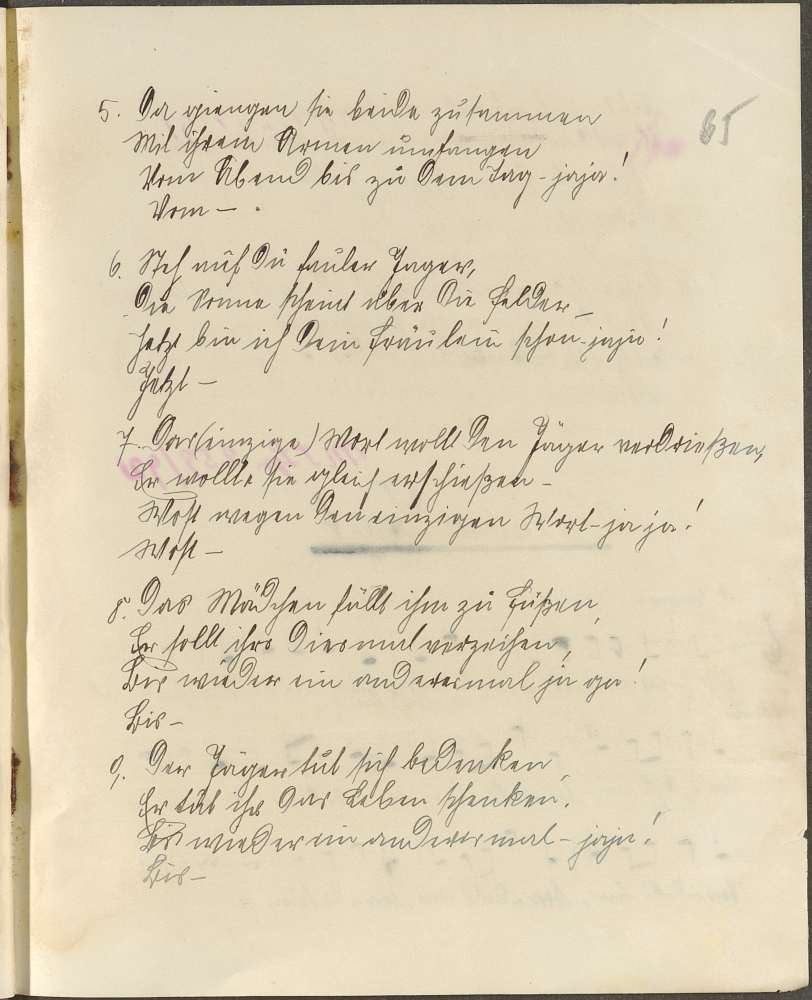 65
5. Da giengen sie beide zusammen
Mit ihrem Armen umfangen
Vom Abend bis zu dem Tag - jaja!
Vom -
6. Steh auf du fauler Jager,
Die Sonne scheint über die Felder -
Jetzt bin ich dein Fräulein schon - jaja!
Jetzt -
7. Das (einzige) Wort wollt den Jäger verdrießen,
Er wollte sie gleich erschießen -
Wohl wegen den einzigen Wort - jaja!
Wohl -
8. Das Mädchen fällt ihm zu Füßen,
Er sollt ihrs diesmal verzeihen,
Bis wieder ein anderesmal ja ja!
Bis -
9. Der Jäger tut sich bedenken,
Er tut ihr das Leben schenken.
Bis wieder ein anderesmal - jaja!
Bis -